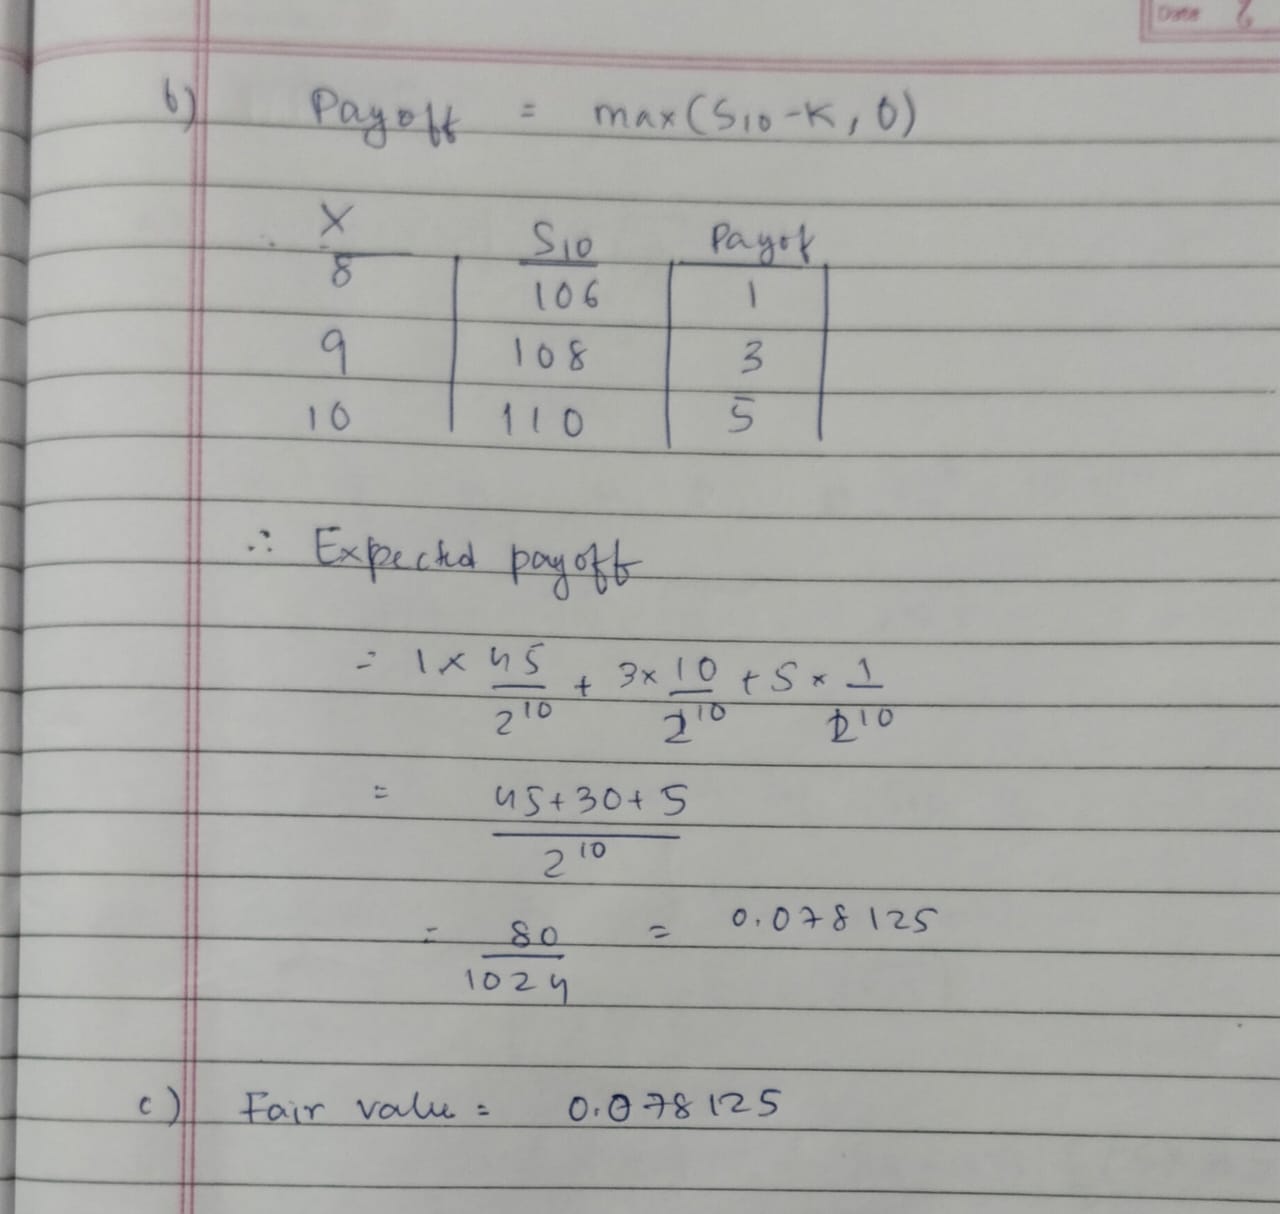 Date 6
b) Payoff = max(S10-K, 0)
X S10 Payof
8 106 1
9 108 3
10 110 5
∴ Expected payoff
= 1 × 45/2^10 + 3× 10/2^10 + 5 × 1/2^10
= 45+30+5/2^10
= 80/1024 = 0.078125
c) Fair value = 0.078125